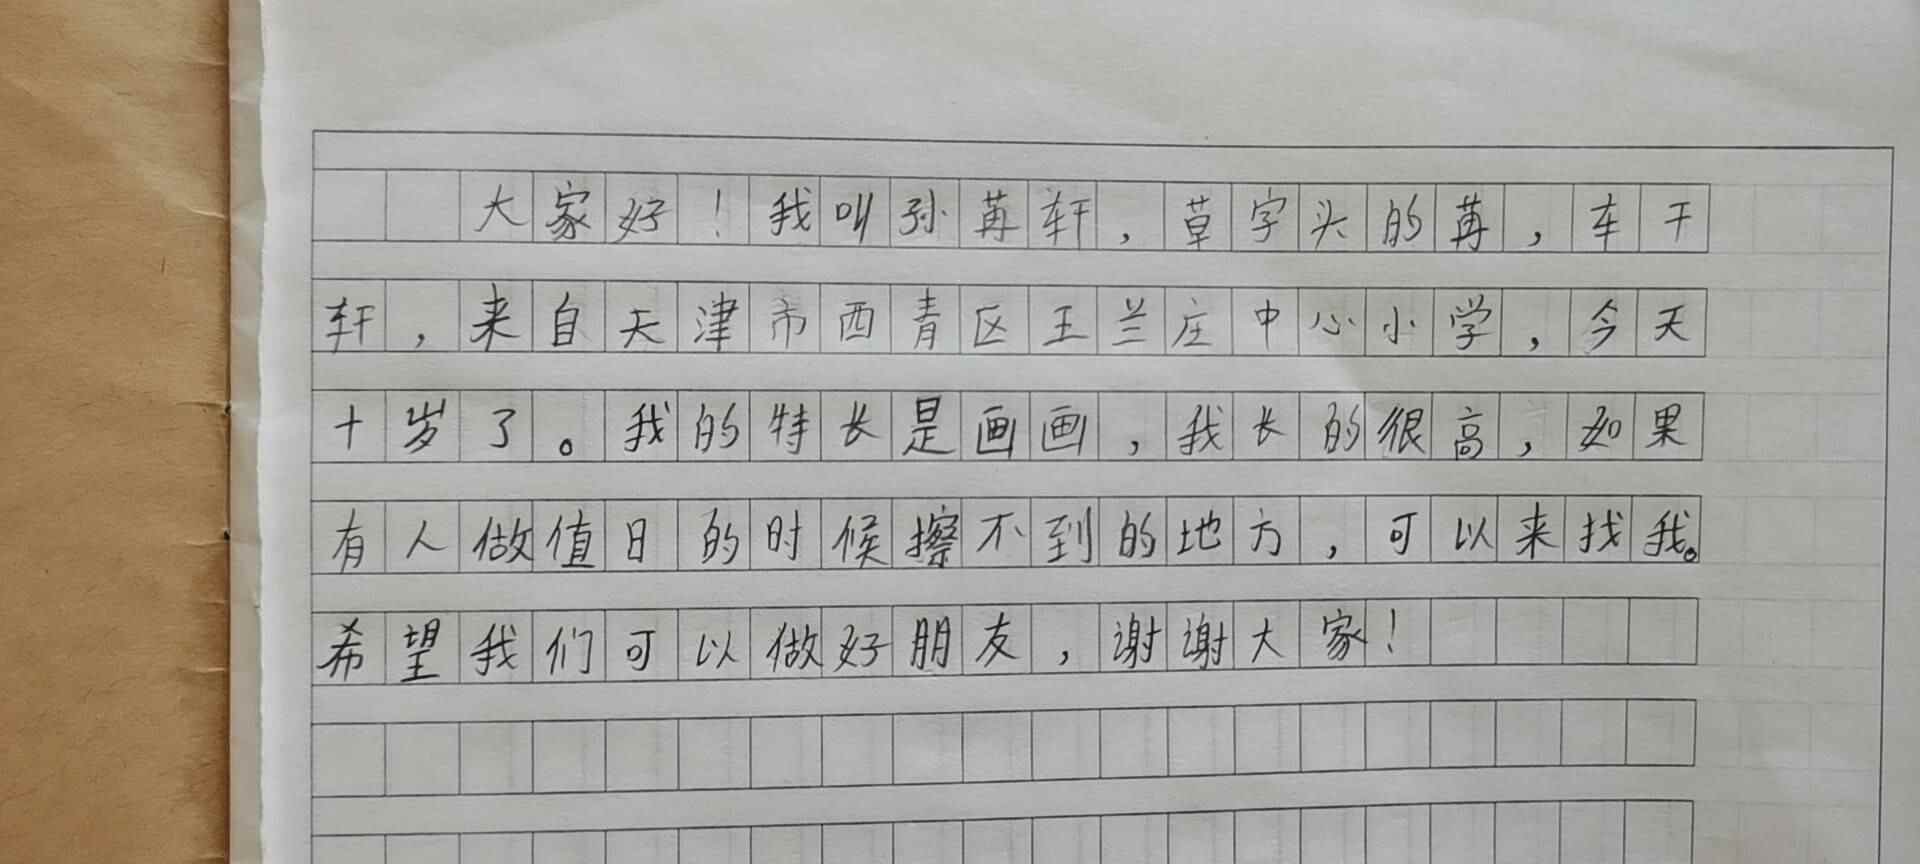 大家好！我叫孙苒轩，草字头的苒，车干
轩，来自天津市西青区王兰庄中心小学，今天
十岁了。我的特长是画画，我长的很高，如果
有人做值日的时候擦不到的地方，可以来找我。
希望我们可以做好朋友，谢谢大家！